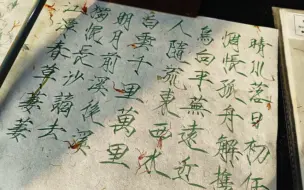 晴川落日初低
惆悵孤舟解攜
鳥向平蕪遠近
人隨流東西水
白雲千里萬里
明月前溪後溪
獨恨長沙謫去
江潭春草萋萋